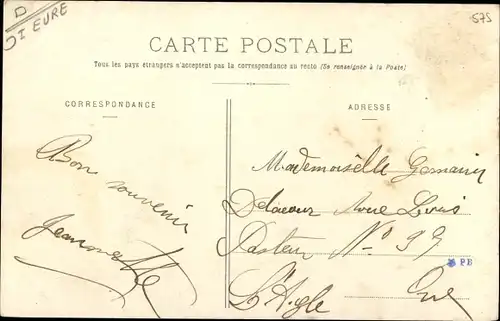 D
I EURE
575
CARTE POSTALE
Tous les pays étrangers n'acceptent pas la correspondance au recto (Se renseigner à la Poste)
CORRESPONDANCE
ADRESSE
Bon souvenir
Jeannette
Mademoiselle Germain
Delacour Louis
Pasteur N°
L'Aigle
PE